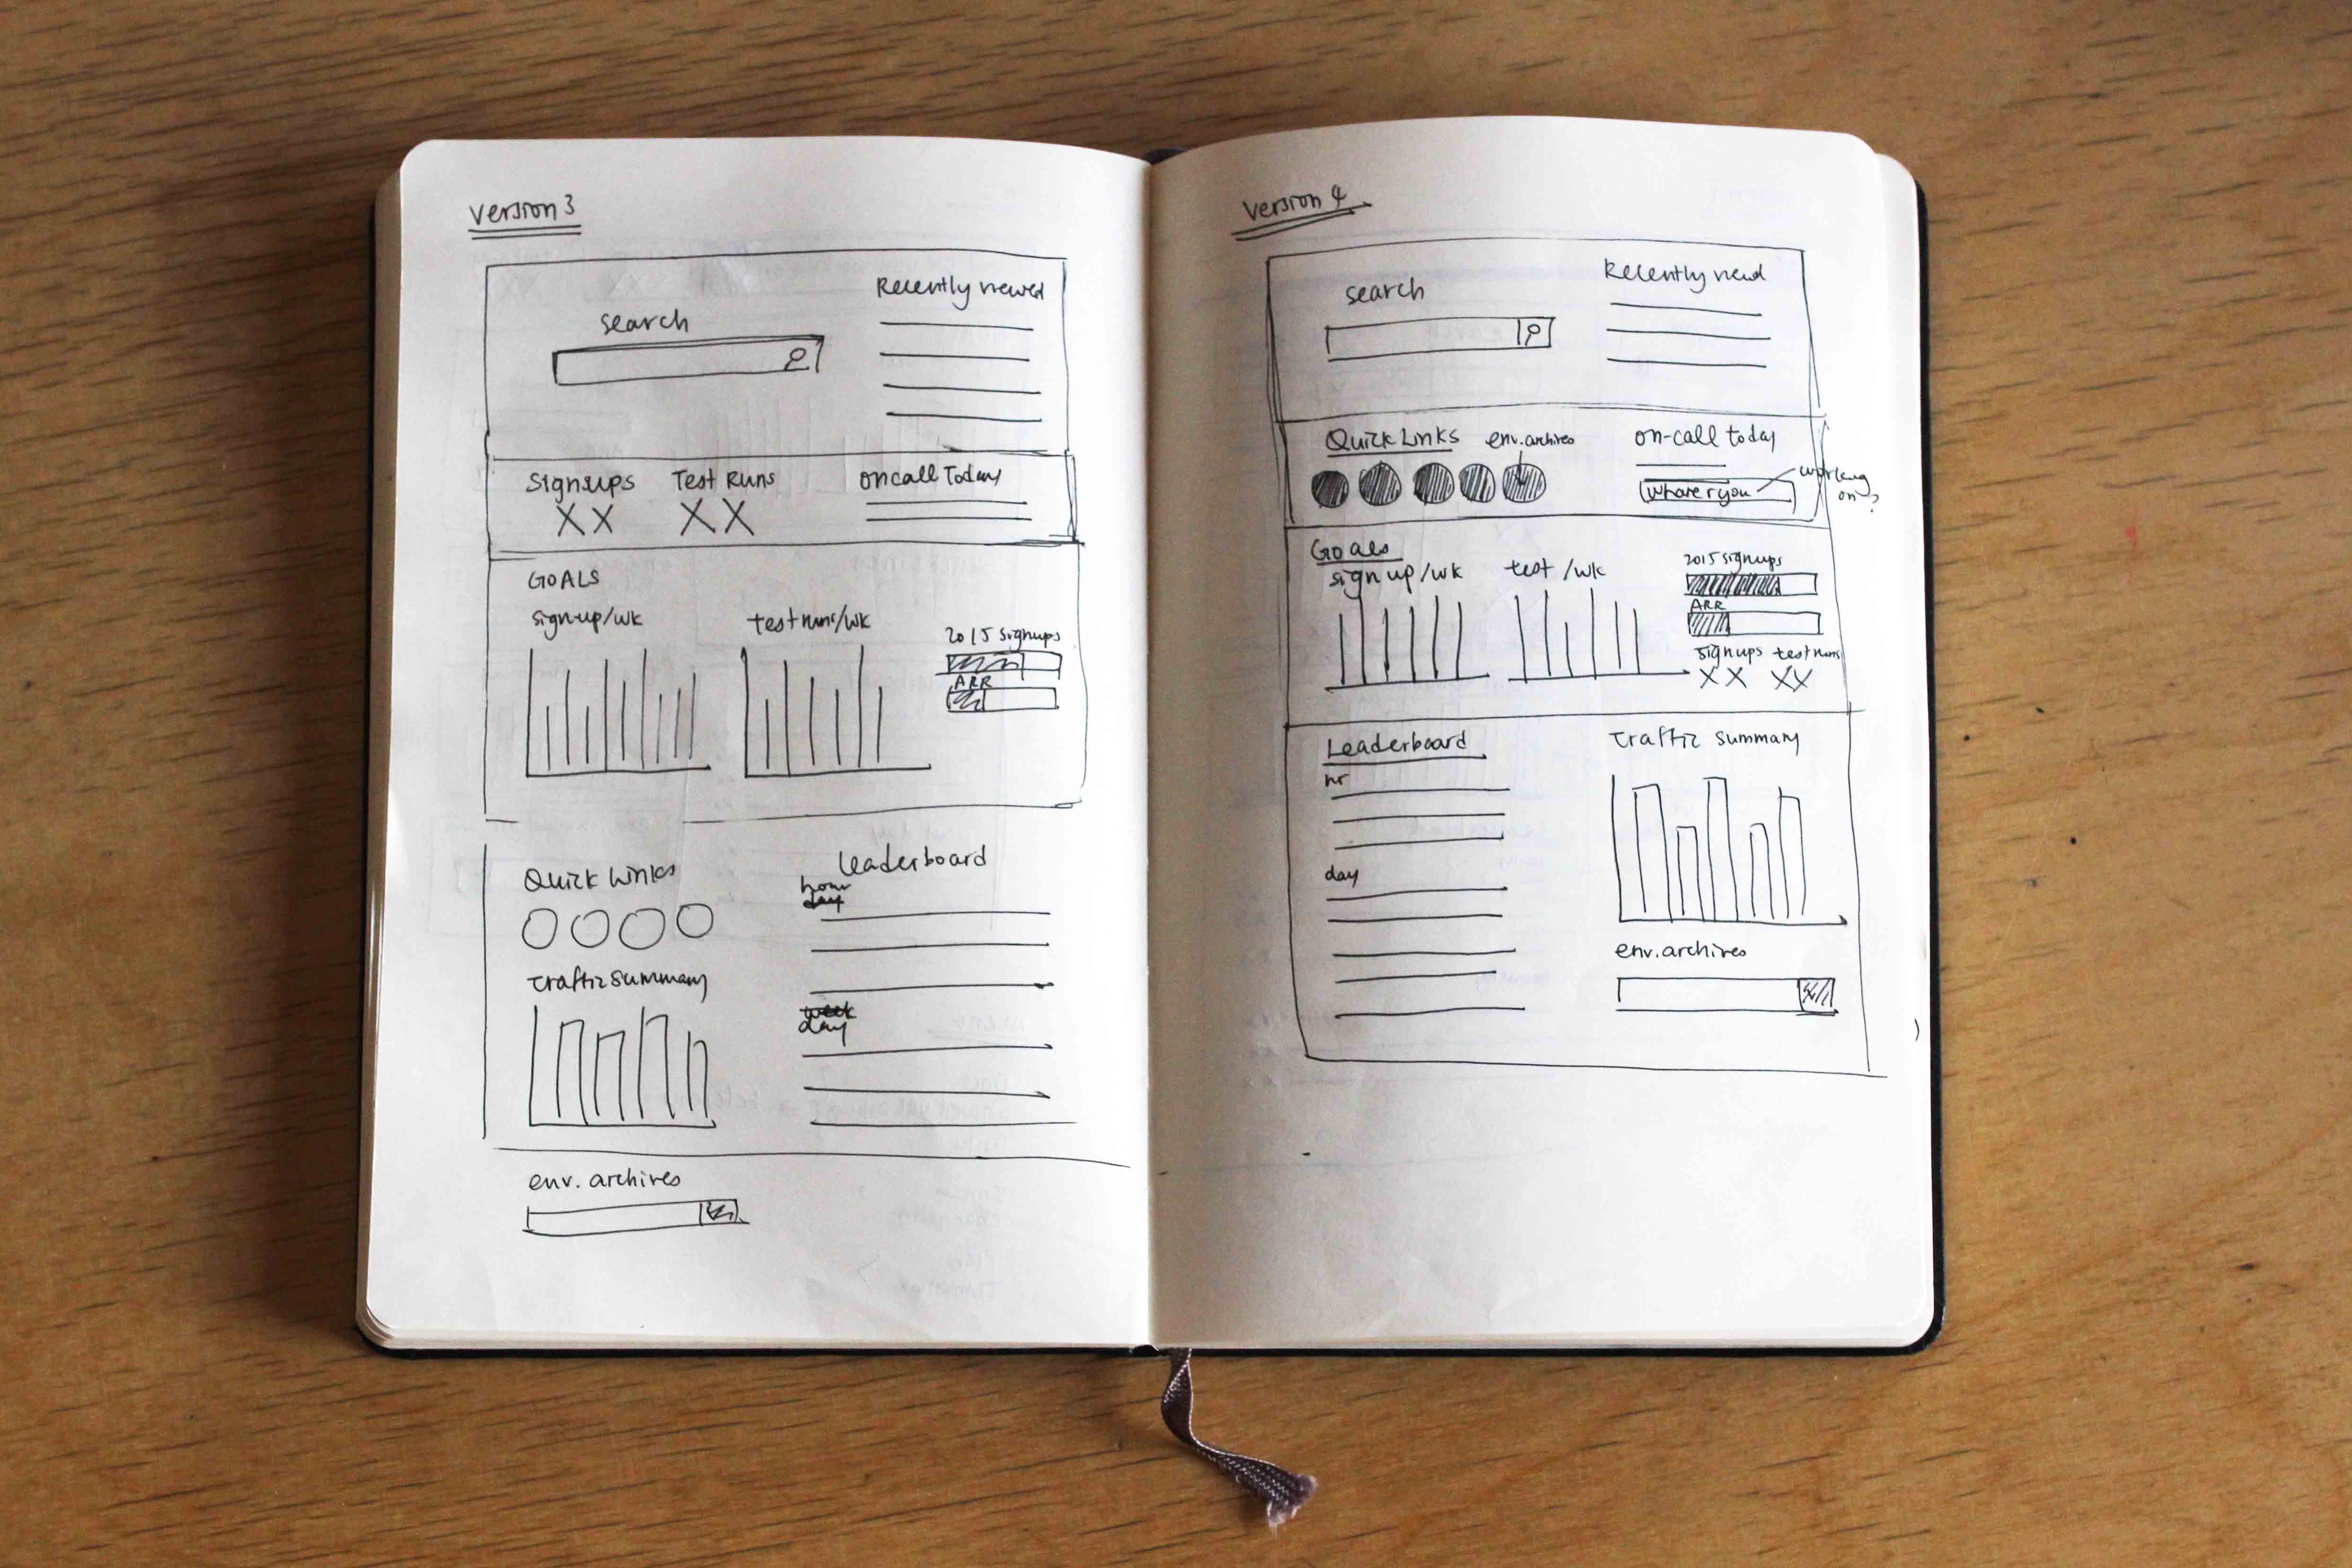 Version 3
Recently viewed
search
Signups Test Runs on call Today
XX XX
GOALS
sign-up/wk test runs/wk
2015 signups
ARR
Quick Links
Leaderboard
hour
day
Traffic Summary
week
day
env. archives
Version 4
search
Recently viewed
Quick Links env. archives on-call today
where r you
working
on?
Goals
sign up/wk test /wk
2015 signups
ARR
signups test runs
XX XX
Leaderboard
Traffic Summary
hr
day
env. archives